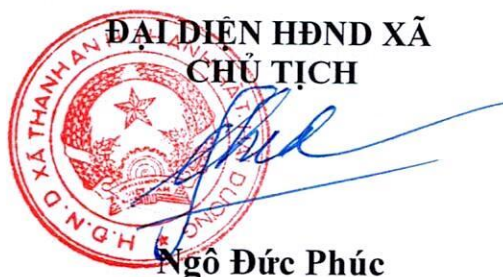 ĐẠI DIỆN HĐND XÃ
CHỦ TỊCH
H.Đ.N.D XÃ THANH AN
DƯƠNG
Ngô Đức Phúc